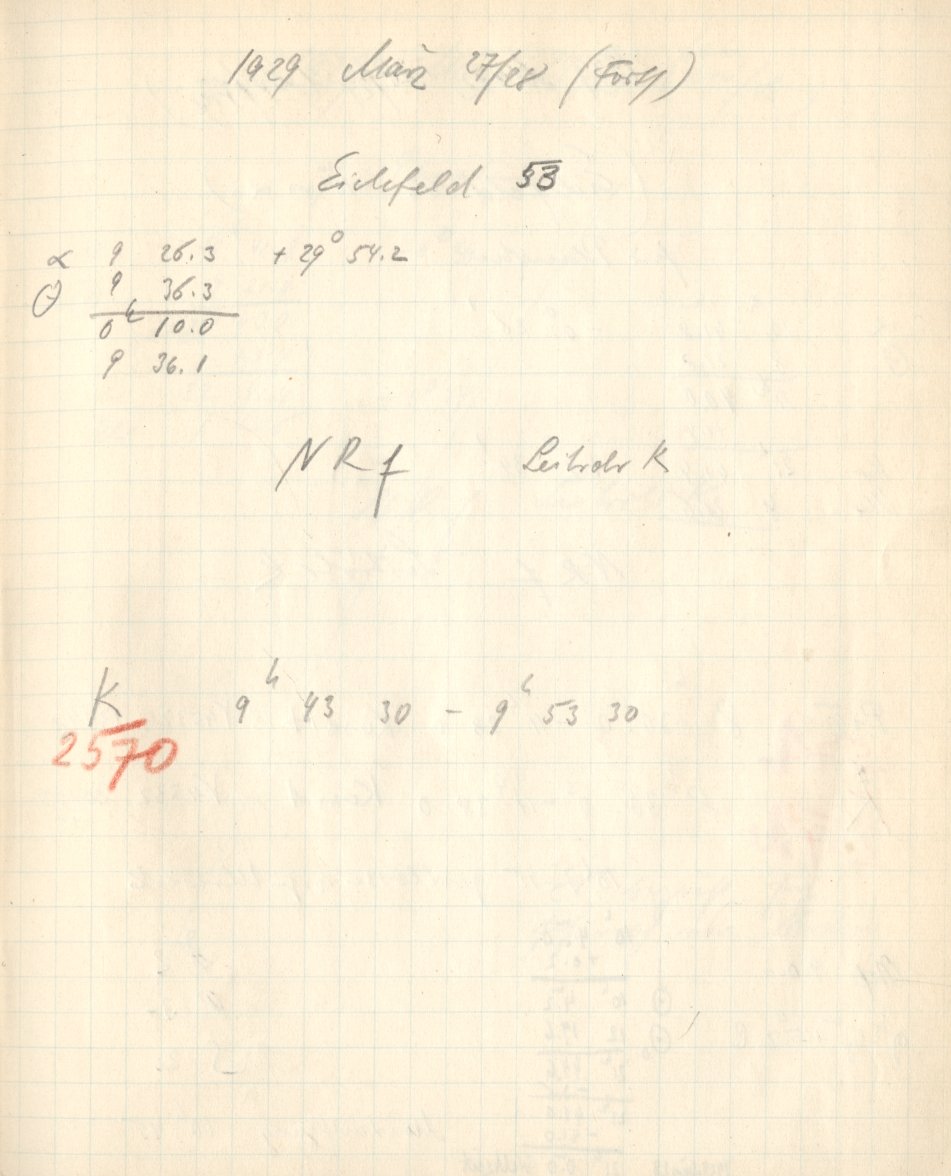 1929 März 27/28 (Forts)
Eichfeld 53
α 9 26.3 +29° 54.2
Θ 9 36.3
0ʰ 10.0
9 36.1
NR f Leitrohr K
K 9ʰ 43 30 - 9ʰ 53 30
2570